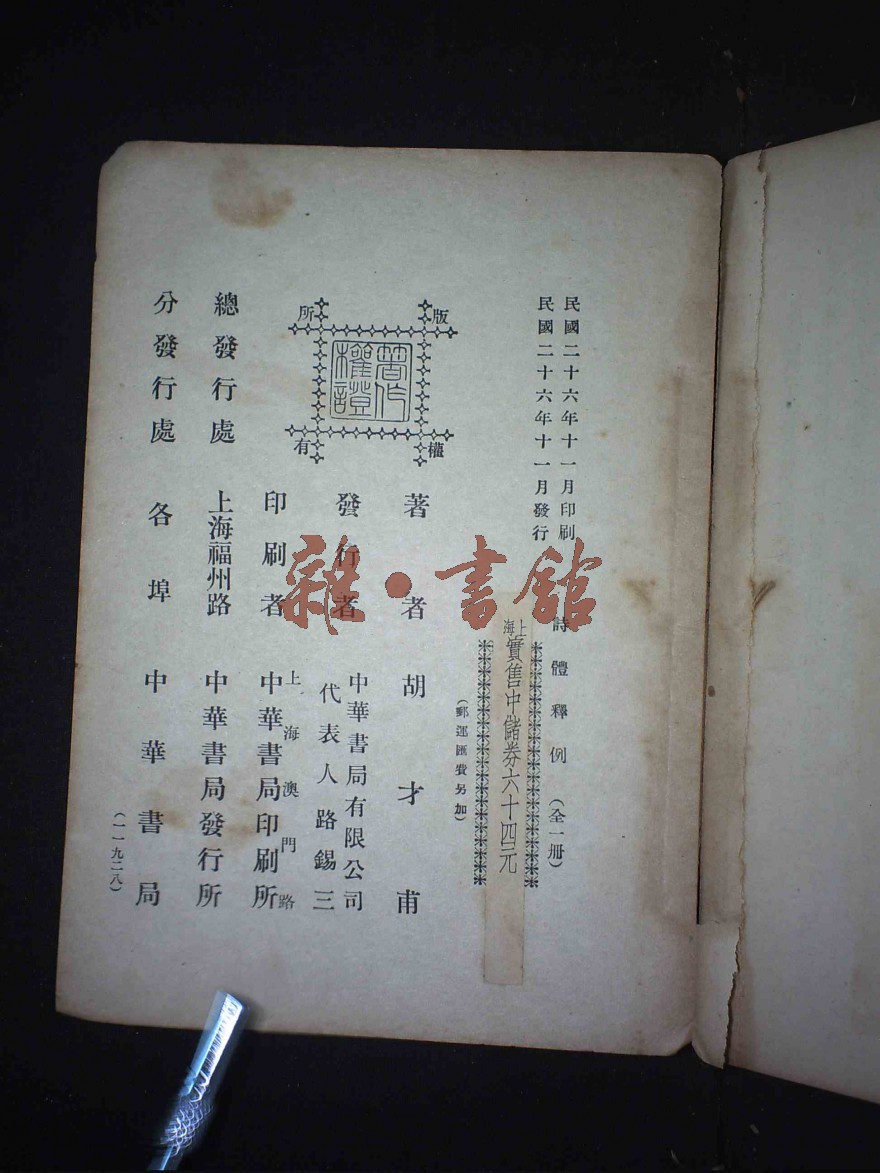 民國二十六年十一月印刷
民國二十六年十一月發行
詩體釋例（全一冊）
上海實售中儲券六十四元
（郵運匯費另加）
版權所有
著作權證
著者 胡才甫
發行者 中華書局有限公司
代表人 路錫三
印刷者 上海澳門路
中華書局印刷所
總發行處 上海福州路 中華書局發行所
分發行處 各埠 中華書局
（一一九二八）
雜·書館